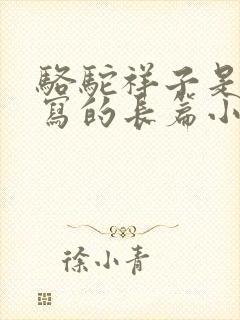 駱駝祥子是
寫的長篇小
徐小青